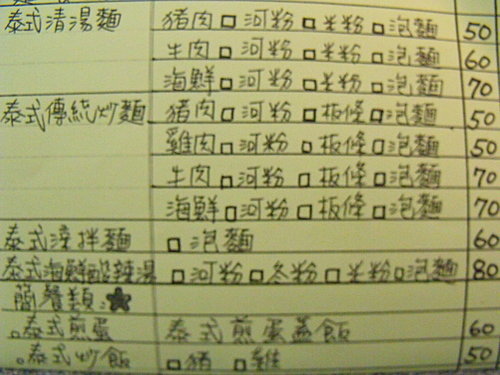 泰式清湯麵 豬肉 □ 河粉 □ 米粉 □ 泡麵 50
牛肉 □ 河粉 □ 米粉 □ 泡麵 60
海鮮 □ 河粉 □ 米粉 □ 泡麵 70
泰式傳統炒麵 豬肉 □ 河粉 □ 板條 □ 泡麵 50
雞肉 □ 河粉 □ 板條 □ 泡麵 50
牛肉 □ 河粉 □ 板條 □ 泡麵 70
海鮮 □ 河粉 □ 板條 □ 泡麵 70
泰式涼拌麵 □ 泡麵 60
泰式海鮮酸辣湯 □ 河粉 □ 冬粉 □ 米粉 □ 泡麵 80
簡餐類:★
。泰式煎蛋 泰式煎蛋蓋飯 60
。泰式炒飯 □ 豬 □ 雞 50